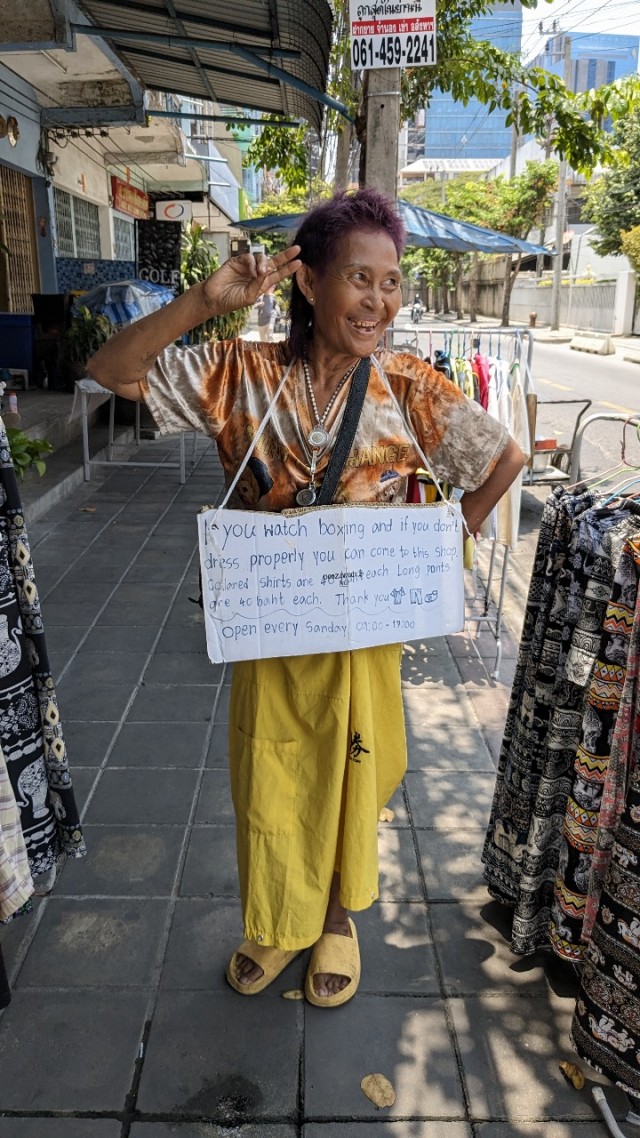 ฝากขาย จำนอง เช่า อสังหาฯ
061-459-2241
GOLF
RANGE
If you watch boxing and if you don't
dress properly you can come to this shop.
Collared shirts are each Long pants
are 40 baht each. Thank you
Open every Sanday 09:00-17:00